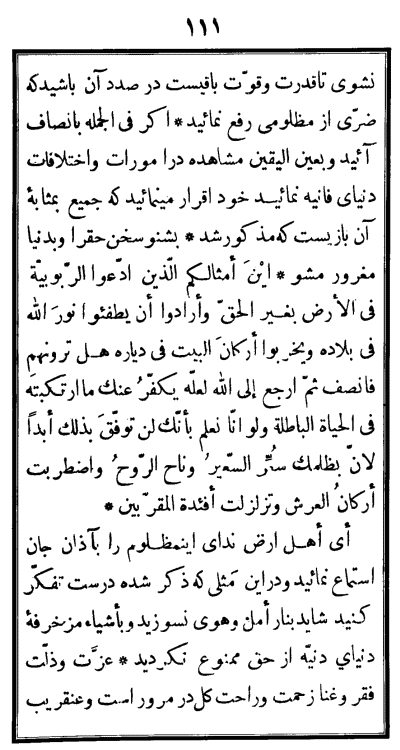 ١١١
نشوی تاقدرت وقوّت باقیست در صدد آن باشیدکه
ضرّی از مظلومی رفع نمائید * اکر فی الجمله بانصاف
آئید وبعین الیقین مشاهده درا مورات واختلافات
دنیای فانیه نمائیـد خود اقرار مینمائید که جمیع بمثابهٔ
آن بازیست که مذ کورشد * بشنو سخن حقرا وبدنیا
مغرور مشو * ایْنَ أمثالـکم الّذین ادّعوا الرّبوبیّة
فی الأرض بغـیر الحقّ وأرادوا أن یطفئوا نورَ الله
فی بلاده ویخر بوا أرکانَ البیت فی دیاره هـل ترونهم
فانصف ثمّ ارجع إلی الله لعلّه یـکفّرُ عنك ماارتـکبتَه
فی الحیاة الباطلة ولو انّا نعلم بأنّك لن توفّقَ بذلك أبداً
لانّ بظلمك سُعِّرَ السّعیرُ وناح الرّوحُ واضطر بت
أرکانُ العرش وتزلزلت أفئدة المقرّبین *
أی أهـل ارض ندای اینمظلـوم را بآذان جان
استماع نمائید ودراین مَثلی که ذکر شده درست تفـکّر
کـنید شاید بنار أمل وهوی نسوزید وبأشیاء مزخرفهٔ
دنیاي دنیّه از حق ممنوع نکردید * عزّت وذلّت
فقر وغنا زحمت وراحت کل در مرور است وعنقریب